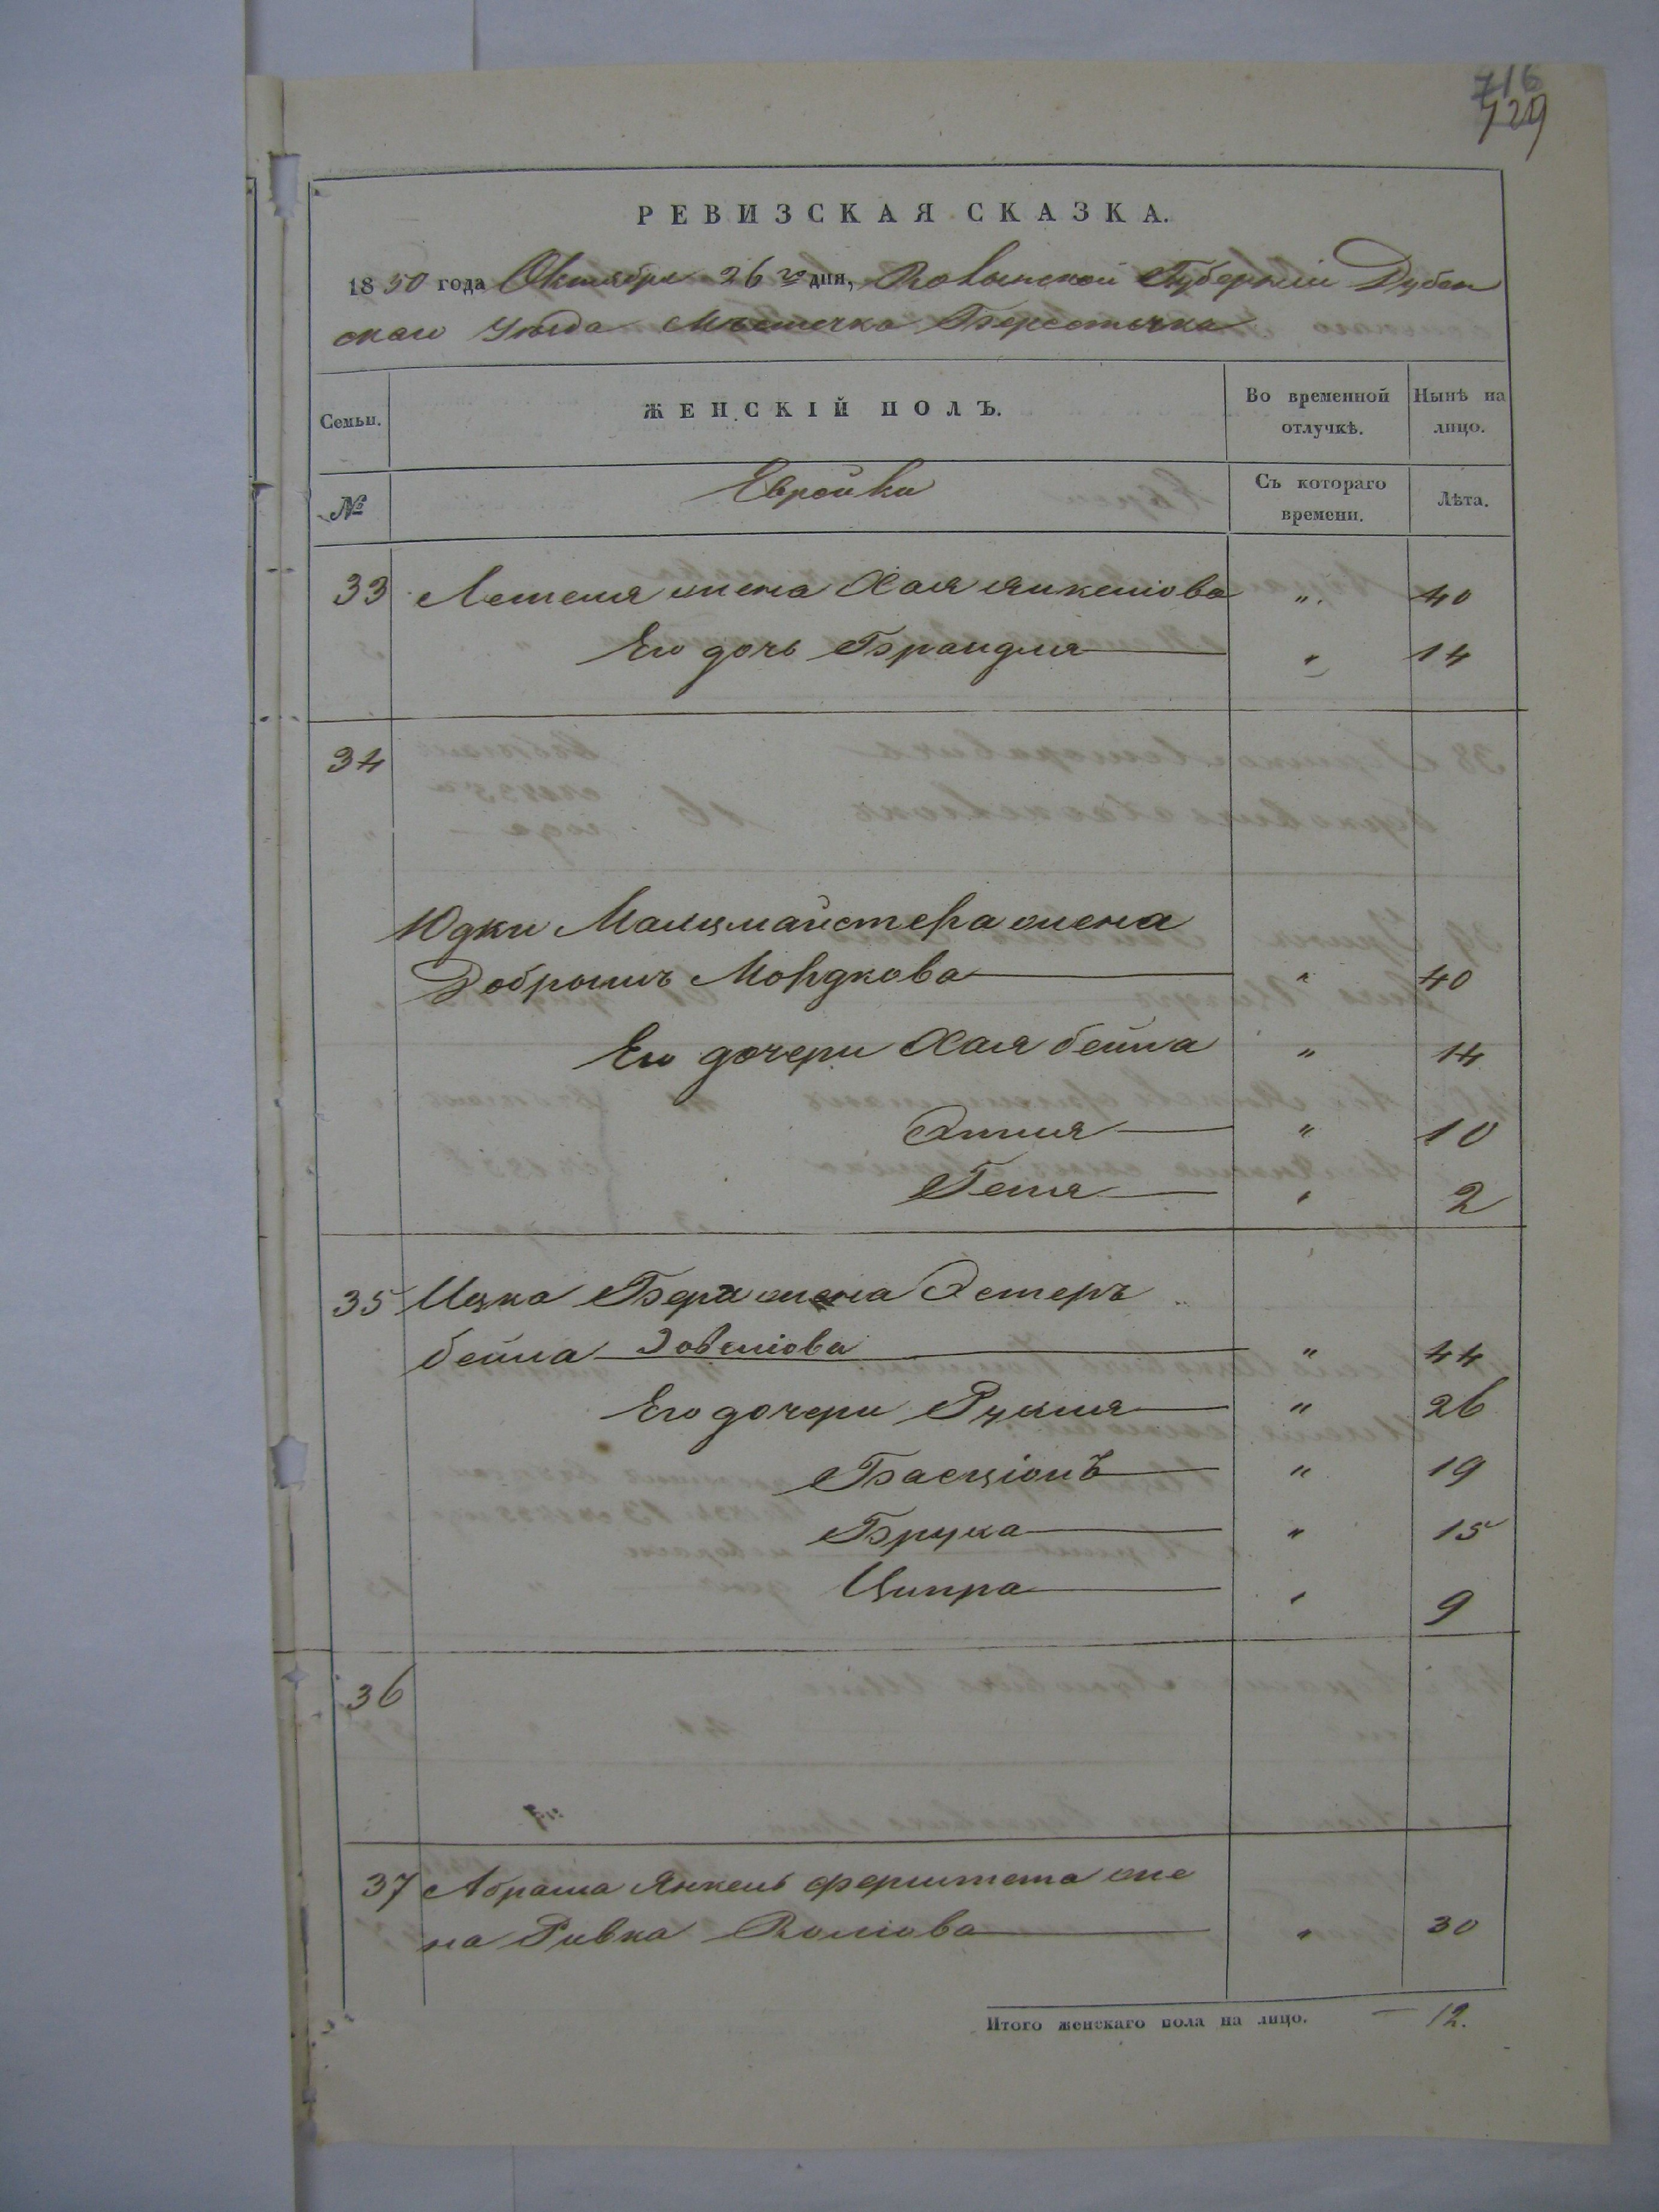 716
729
РЕВИЗСКАЯ СКАЗКА.
1850 года Октября 26го дня, Волынской Губернии Дубен
скаго Уѣзда Мѣстечка Берестечка
Семьи.
ЖЕНСКІЙ ПОЛЪ.
Во временной отлучкѣ.
Нынѣ на лицо.
№
Еврейки
Съ котораго времени.
Лѣта.
33 жена Хая Янкеліова " 40
Его дочь Брандля " 14
34
Юдки Малцмайстера жена
Добрышъ Мордкова " 40
Его дочери Хая бейла " 14
Этля " 10
Геня " 2
35 Ицка Бера жена Эстеръ
бейла Довеліова " 44
Его дочери Рухля " 26
Басціонъ " 19
Бруха " 15
Ципра " 9
36
37 Абрама Янкель ферштета же
на Ривка Волліова " 30
Итого женскаго пола на лицо. — 12.